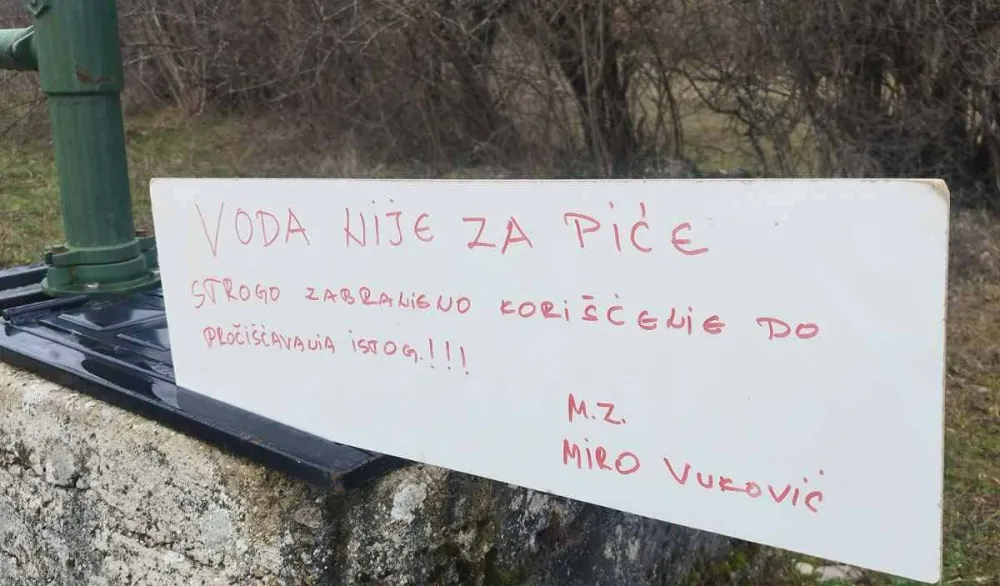 VODA NIJE ZA PIĆE
STROGO ZABRANJENO KORIŠĆENJE DO
PROČIŠĆAVANJA ISTOG.!!!
M.Z.
MIRO VUKOVIĆ